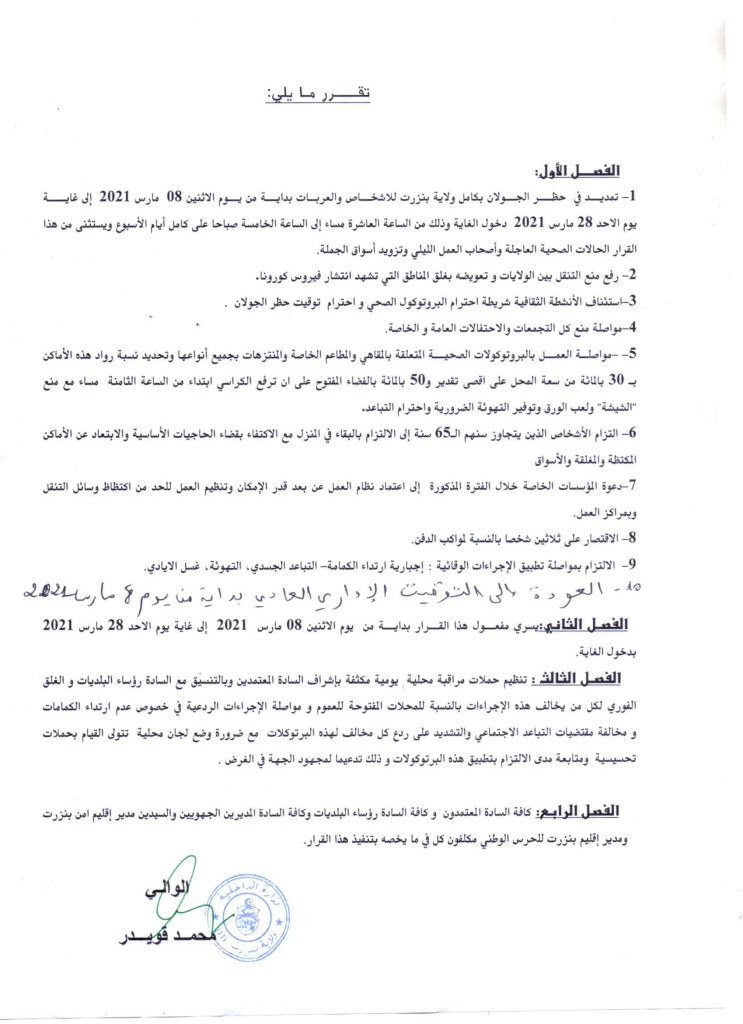 تقـــرر ما يلي:
الفصل الأول:
1- تمديد في حظر الجولان بكامل ولاية بنزرت للاشخاص والعربات بداية من يوم الاثنين 08 مارس 2021 إلى غاية
يوم الاحد 28 مارس 2021 دخول الغاية وذلك من الساعة العاشرة مساء إلى الساعة الخامسة صباحا على كامل أيام الأسبوع ويستثنى من هذا
القرار الحالات الصحية العاجلة وأصحاب العمل الليلي وتزويد أسواق الجملة.
2- رفع منع التنقل بين الولايات و تعويضه بغلق المناطق التي تشهد انتشار فيروس كورونا.
3-استئناف الأنشطة الثقافية شريطة احترام البروتوكول الصحي و احترام توقيت حظر الجولان .
4-مواصلة منع كل التجمعات والاحتفالات العامة و الخاصة.
5- -مواصلة العمل بالبروتوكولات الصحية المتعلقة بالمقاهي والمطاعم الخاصة والمنتزهات بجميع أنواعها وتحديد نسبة رواد هذه الأماكن
بـ 30 بالمائة من سعة المحل على اقصى تقدير و50 بالمائة بالفضاء المفتوح على ان ترفع الكراسي ابتداء من الساعة الثامنة مساء مع منع
"الشيشة" ولعب الورق وتوفير التهوئة الضرورية واحترام التباعد.
6- التزام الأشخاص الذين يتجاوز سنهم الـ65 سنة إلى الالتزام بالبقاء في المنزل مع الاكتفاء بقضاء الحاجيات الأساسية والابتعاد عن الأماكن
المكتظة والمغلقة والأسواق
7-دعوة المؤسسات الخاصة خلال الفترة المذكورة إلى اعتماد نظام العمل عن بعد قدر الإمكان وتنظيم العمل للحد من اكتظاظ وسائل التنقل
وبمراكز العمل.
8- الاقتصار على ثلاثين شخصا بالنسبة لمواكب الدفن.
9- الالتزام بمواصلة تطبيق الإجراءات الوقائية : إجبارية ارتداء الكمامة- التباعد الجسدي، التهوئة، غسل الايادي.
10- العودة إلى التوقيت الإداري العادي بداية من يوم 8 مارس 2021
الفصل الثاني:يسري مفعول هذا القرار بداية من يوم الاثنين 08 مارس 2021 إلى غاية يوم الاحد 28 مارس 2021
بدخول الغاية.
الفصل الثالث : تنظيم حملات مراقبة محلية يومية مكثفة بإشراف السادة المعتمدين وبالتنسيق مع السادة رؤساء البلديات و الغلق
الفوري لكل من يخالف هذه الإجراءات بالنسبة للمحلات المفتوحة للعموم و مواصلة الإجراءات الردعية في خصوص عدم ارتداء الكمامات
و مخالفة مقتضيات التباعد الاجتماعي والتشديد على ردع كل مخالف لهذه البرتوكلات مع ضرورة وضع لجان محلية تتولى القيام بحملات
تحسيسية ومتابعة مدى الالتزام بتطبيق هذه البرتوكولات و ذلك تدعيما لمجهود الجهة في الغرض .
الفصل الرابع: كافة السادة المعتمدون و كافة السادة رؤساء البلديات وكافة السادة المديرين الجهويين والسيدين مدير إقليم امن بنزرت
ومدير إقليم بنزرت للحرس الوطني مكلفون كل في ما يخصه بتنفيذ هذا القرار.
الوالي
وزارة الداخلية
ولاية بنزرت
محمد قويدر